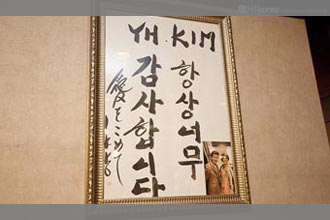 YH. KIM
항상 너무
감사합니다
愛をこめて